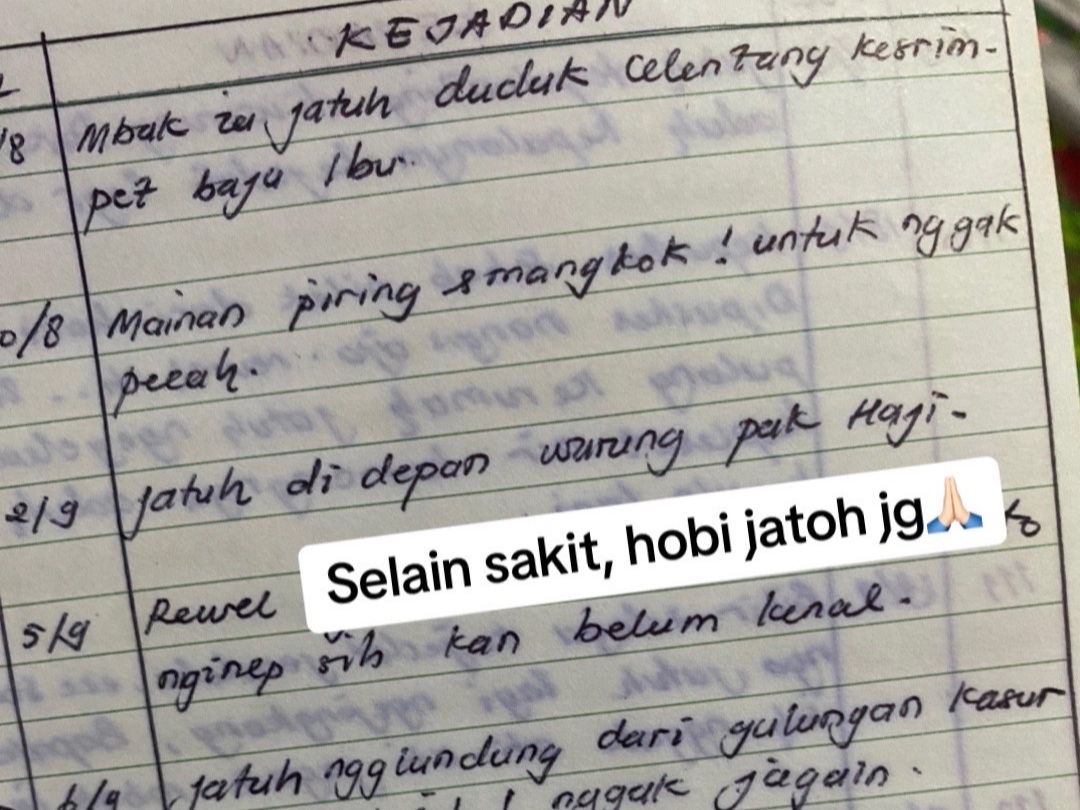 KEJADIAN
/8 Mbak ia jatuh duduk celentang kesrim-
pet baju Ibu.
0/8 Mainan piring & mangkok ! untuk nggak
pecah.
2/9 jatuh di depan warung pak Haji-
Selain sakit, hobi jatoh jg🙏🏻
5/9 Rewel
nginep sih kan belum kenal.
6/9 jatuh ngglundung dari gulungan kasur
nggak jagain.